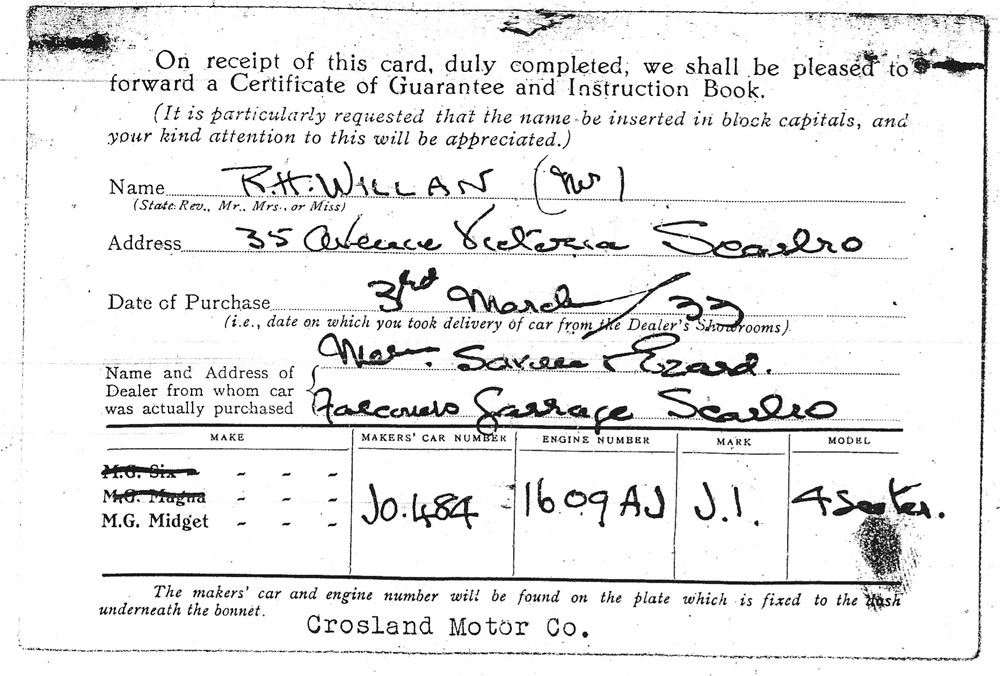 On receipt of this card, duly completed, we shall be pleased to
forward a Certificate of Guarantee and Instruction Book.
(It is particularly requested that the name be inserted in block capitals, and
your kind attention to this will be appreciated.)
Name R.H. WILLAN (Mr)
(State Rev., Mr., Mrs., or Miss)
Address 35 Avenue Victoria Scarbro
Date of Purchase 3rd March / 33
(i.e., date on which you took delivery of car from the Dealer's Showrooms)
Name and Address of
Dealer from whom car
was actually purchased
Ezard.
Garrage Scarbro
MAKE MAKERS' CAR NUMBER ENGINE NUMBER MARK MODEL
M.G. Six - - -
M.G. Magna - - -
M.G. Midget - - - J0.484 1609 AJ J.1. 4 Seater.
The makers' car and engine number will be found on the plate which is fixed to the dash
underneath the bonnet.
Crosland Motor Co.